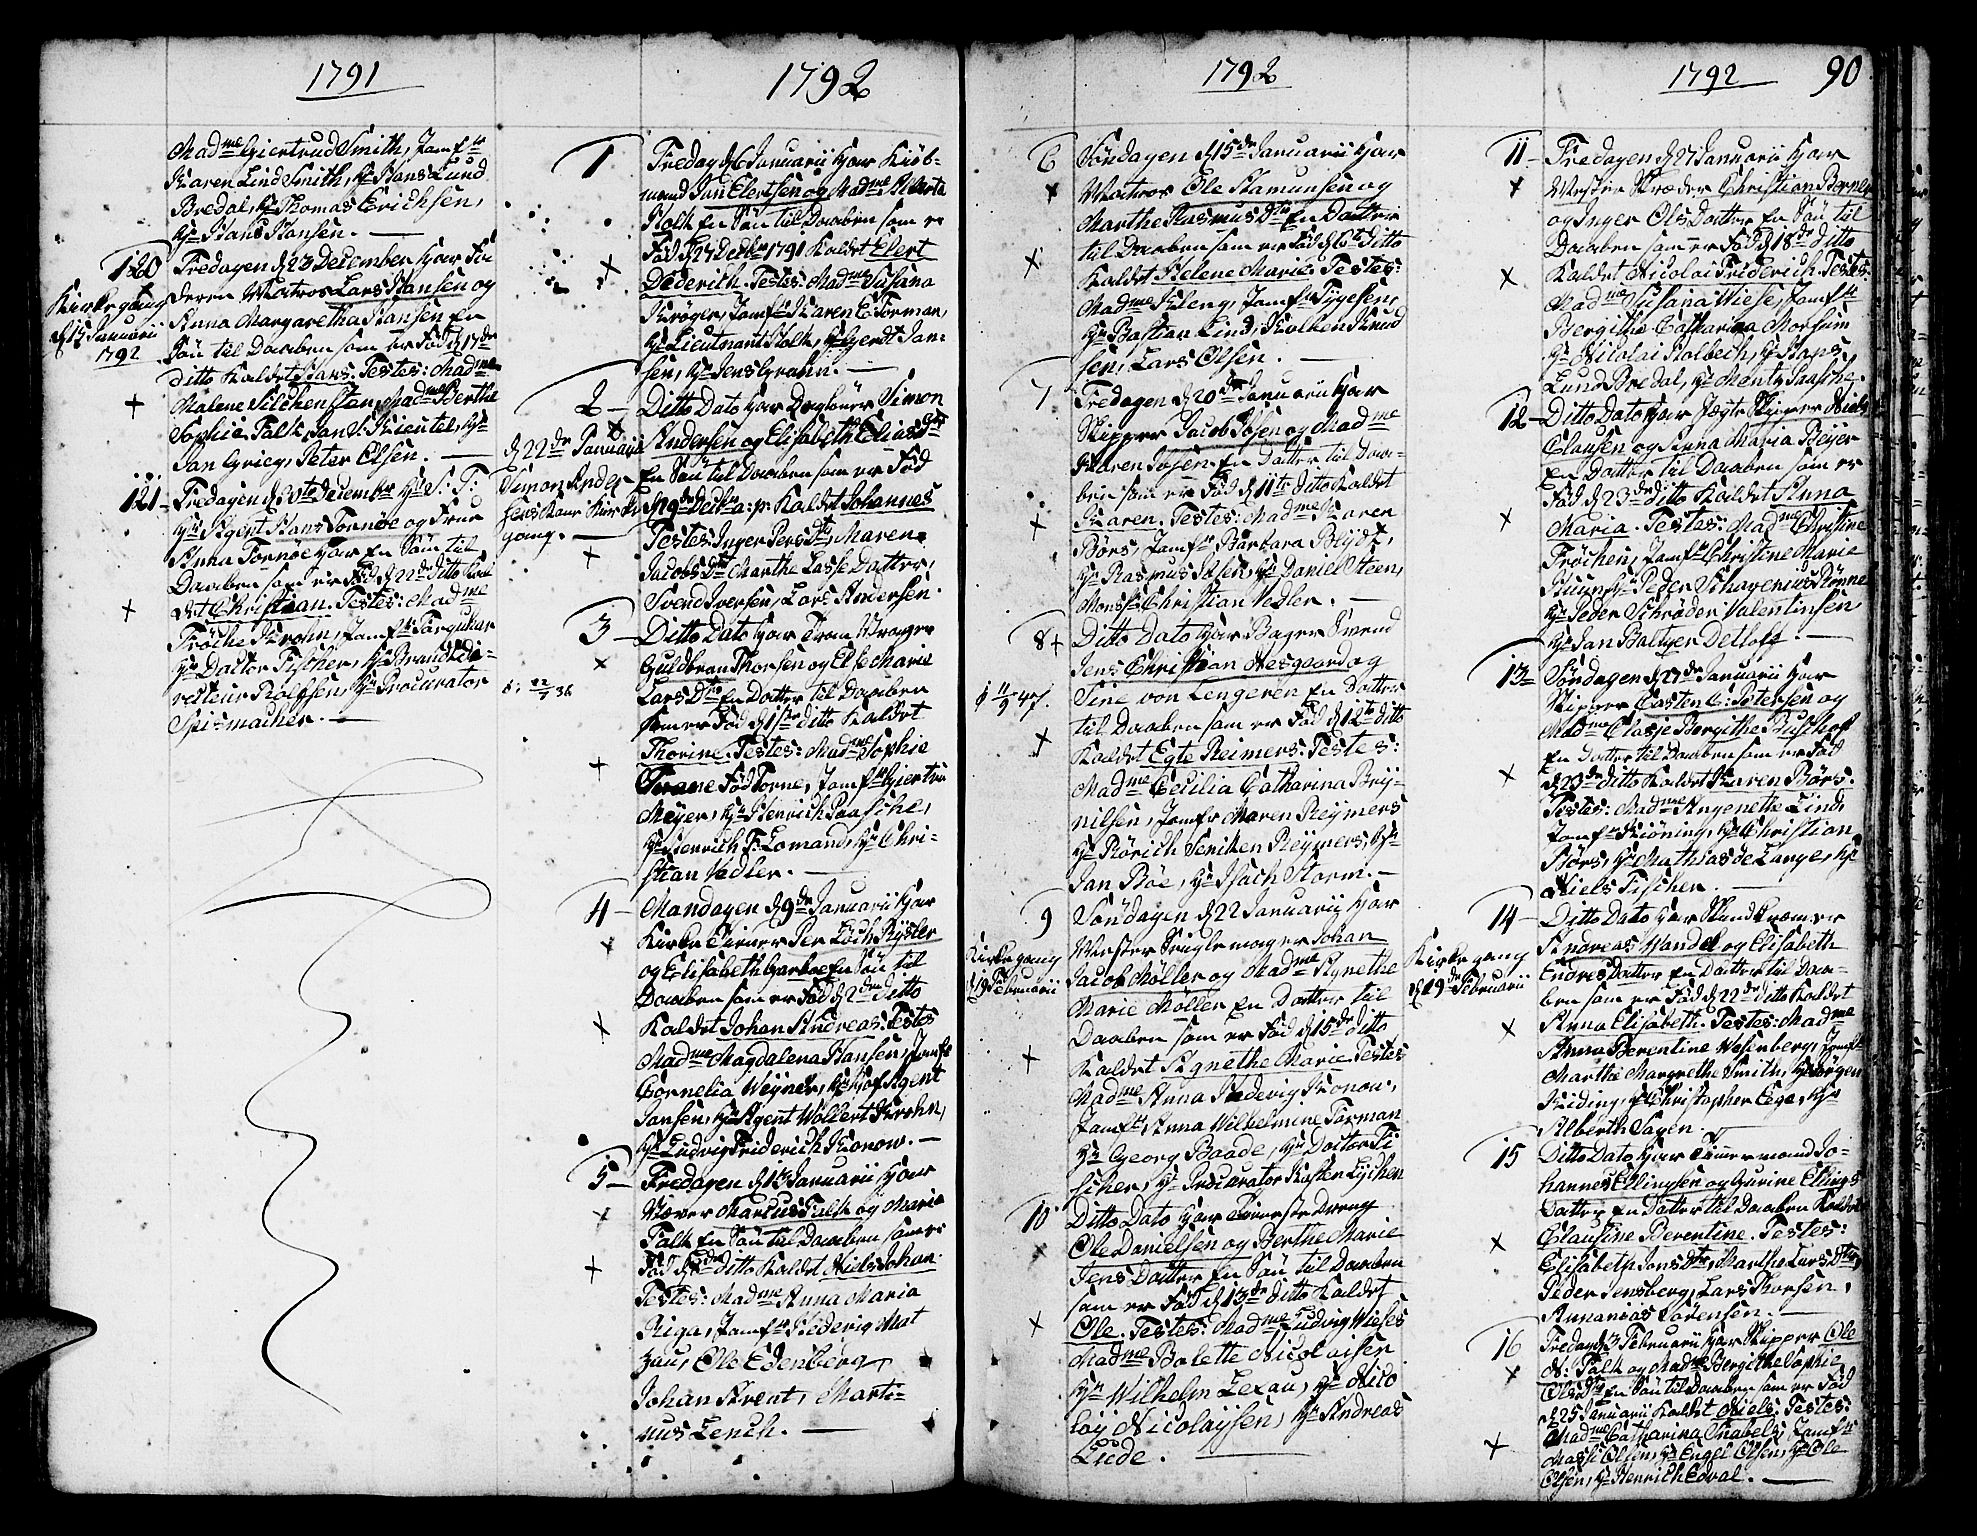 1791
Mad.me Giertrud Smith, Jomf.r
Karen Lind Smith, H.r Hans Lund
Bredal, H.r Thomas Erichsen,
H.r Hans Hansen. —
120
Fredagen d. 23 December har
deren Matros Lars Hansen og
Anna Margaretha Hansen En
Søn til Daaben som er Fød d. 17de
ditto Kaldet Hans. Testes: Mad.me
Malene Silchenstæn, Mad.me Berthe
Sophie Falk, Jan S. Kientel, H.r
Jan Grieg, Peter Olsen. —
Kirkegang
d. 15 Januarii
1792
121 — Fredagen d. 30te December H.r S: T:
H.r Agent Hans Tornøe og Frue
Anna Tornøe har En Søn til
Daaben som er Fød d. 22de ditto Kal
det Christian. Testes: Mad.me
Frøche Krohn, Jomf.r Farquhar
H.r Doctor Fischer, H.r Brandtdi-
recteur Rolfsen, H.r Procurator
Speismacher. —
1792
1
Fredag d. 6 Januarii har Kiøb-
mand Jan Elertsen og Mad.me Alberta
Holk En Søn til Daaben som er
Fød d. 27 Decbr 1791 Kaldet Elert
Dederich. Testes: Mad.me Susana
Krøger, Jomf.r Karen E. Forman,
H.r Lieutnant Holk, H.r Gerdt Jan-
sen, H.r Jens Grahn. —
2 — Ditto Dato har Dagløner Simon
Andersen og Elisabeth Elias Dtr
En Søn til Daaben som er Fød
d. 19de Decbr a: p: Kaldet Johannes
Testes Inger Pers Dtr, Maren
Jacobs Dtr Marthe Lasse Datter,
Svend Iversen, Lars Andersen.
d. 22de Januarii
Simon Ander
sens Kone Kirke
gang. —
3 — Ditto Dato har Tran Vrager
Guldbran Thorsen og Else Marie
Lars Dtr En Datter til Daaben
som er Fød d. 1ste ditto Kaldet
Thorine. Testes: Mad.me Sophie
Trane Fød Torne, Jomf.r Giertru
Meyer, H.r Henrich Paasche,
H.r Henrich F: Lomand, H.r Chri-
stian Vedler. —
4 — Mandagen d. 9de Januarii har
Kirke Tiener Per Løch Ryster
og Elisabeth Garboe En Søn til
Daaben som er Fød d. 2den ditto
Kaldet Johan Andreas. Testes
Mad.me Magdalena Hansen, Jomf.r
Cornelia Weyner, H.r Hof Agent
Jansen, H.r Agent Wollert Krohn,
H.r Ludvig Friderich Konow. —
5 — Fredagen d. 13 Januarii har
Væver Marcus Falk og Maria
Falk En Søn til Daaben som er
Fød d. ditto Kaldet Niels Johan.
Testes: Mad.me Anna Maria
Riga, Jomf.r Hedevig Mat
zau, Ole Edenberg,
Johan Arent, Marti-
nus Lench. —
1792
6
Søndagen d. 15de Januarii har
Matros Ole Aamunsen og
Marthe Rasmus Dtr En Datter
til Daaben som er Fød d. 6te ditto
Kaldet Helene Marie. Testes:
Mad.me Kleng, Jomf.r Tygesen,
H.r Bastian Lind, Kolben Knud
sen, Lars Olsen. —
7
Fredagen d. 20de Januarii har
Skipper Jacob Ibsen og Mad.me
Karen Ibsen En Datter til Daa-
ben som er Fød d. 11te ditto Kaldet
Karen. Testes: Mad.me Karen
Børs, Jomf.r Barbara Blydt,
H.r Rasmus Ibsen, H.r Daniel Steen,
Mons.r Christian Vedler. —
8
Ditto Dato har Bager Svend
Jens Christian Nesgaard og
Sine von Lengeren En Datter
til Daaben som er Fød d. 12te ditto
Kaldet Egte Reimers. Testes:
Mad.me Cecilia Catharina Bry-
nilsen, Jomf.r Maren Reymers
H.r Rørich Seniken Reymers, H.r
Jan Bøe, H.r Isach Storm. —
9
Søndagen d. 22 Januarii har
Mester Seiglemager Johan
Jacob Møller og Mad.me Agnethe
Marie Møller En Datter til
Daaben som er Fød d. 15de ditto
Kaldet Agnethe Marie Testes
Mad.me Anna Hedevig Konow,
Jomf.r Anna Wilhelmine Forman
H.r Georg Baade, H.r Doctor Fi
scher, H.r Procurator Kasten Lychen
Kirkegang
d. 19 Februarii
10
Ditto Dato har Tieneste Dreng
Ole Danielsen og Berthe Marie
Jens Datter En Søn til Daaben
som er Fød d. 13de ditto Kaldet
Ole. Testes: Mad.me Ludvig Wieses
Mad.me Bolette Nicolaisen
H.r Wilhelm Lexau, H.r Nico
lay Nicolaysen, H.r Andreas
Lude. —
1792
90
11 —
Fredagen d. 27 Januarii har
Mester Skræder Christian Berner
og Inger Ols Datter En Søn til
Daaben som er Fød d. 18de ditto
Kaldet Nicolai Friderich. Testes:
Mad.me Susana Wiese, Jomf.r
Bergithe Catharina Morsum
H.r Nicolai Kolbech, H.r Hans
Lund Bredal, H.r Mentz Paasche.
12 — Ditto Dato har Jægte Skipper Niels
Clausen og Anna Maria Beyer
En Datter til Daaben som er
Fød d. 23de ditto Kaldet Anna
Maria. Testes: Mad.me Christine
Frøchen, Jomf.r Christine Marie
H.r Peder Schavenius Rønne
H.r Peder Schrøder Valentinsen,
H.r Jan Baltzer Detloff. —
13 — Søndagen d. 29de Januarii har
Skipper Casten C: Petersen og
Mad.me Clasje Bergithe Buschof
En Datter til Daaben som er Fød
d. 23de ditto Kaldet Karen Børs.
Testes: Mad.me Angenethe Lind,
Jomf.r Kiøning, H.r Christian
Børs, H.r Mathias de Lange, H.r
Niels Fischer. —
14 — Ditto Dato har Huuskræmer
Andreas Wandel og Elisabeth
Endres Datter En Datter til Daa-
ben som er Fød d. 22de ditto Kaldet
Anna Elisabeth. Testes: Mad.me
Anna Berentine Wesenberg, Jomf.r
Marthe Margrethe Smith, H.r Jørgen
Kiding, H.r Christopher Eege, H.r
Alberth Sagen.
Kirkegang
d. 19de Februarii
15
Ditto Dato har Tømermand Jo-
hannes Ellingsen og Gurine Ellings
Datter En Datter til Daaben Kaldet
Claudine Berentine. Testes:
Elisabeth Jons Dtr, Marthe Lars Dtr,
Peder Jensberg, Lars Thorsen,
Annanias Sørensen. —
16
Fredag d. 3 Februarii har Skipper Ole
N: Falk og Mad.me Bergithe Sophie
Ols Dtr En Søn til Daaben som er Fød
d. 25 Januarii Kaldet Niels. Testes:
Mad.me Catharina Snabel, Jomf.r
Masse Olsen, H.r Engel Olsen, H.r Ole
Olsen, H.r Henrich Edval. —